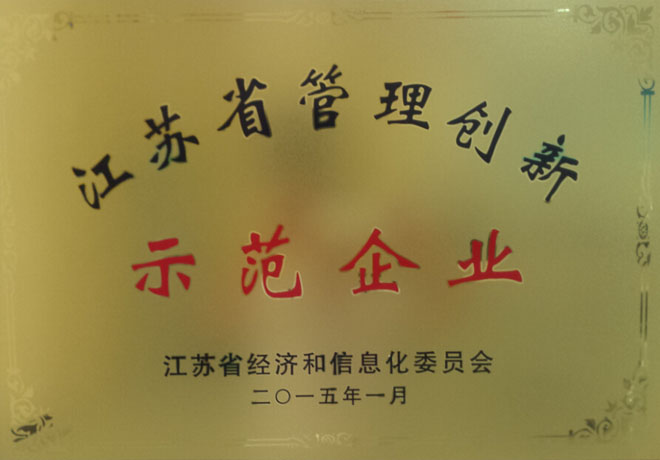 江苏省管理创新
示范企业
江苏省经济和信息化委员会
二〇一五年一月